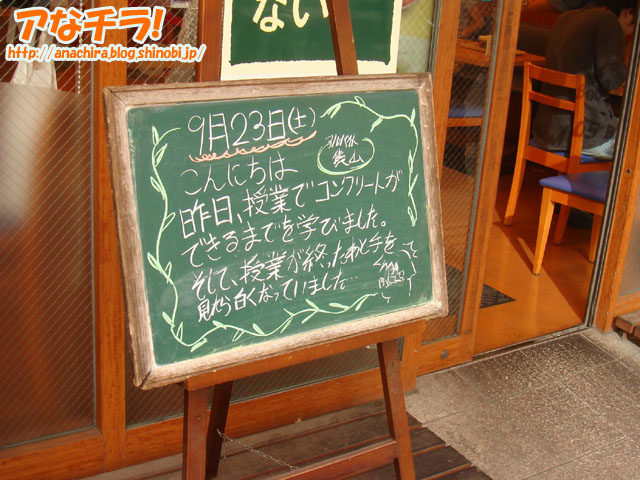 アなチラ!
http://anachira.blog.shinobi.jp/
ない
9月23日(土)
こんにちは
昨日、授業でコンクリートが
できるまでを学びました。
そして、授業が終ったあと手を
見たら白くなっていました…